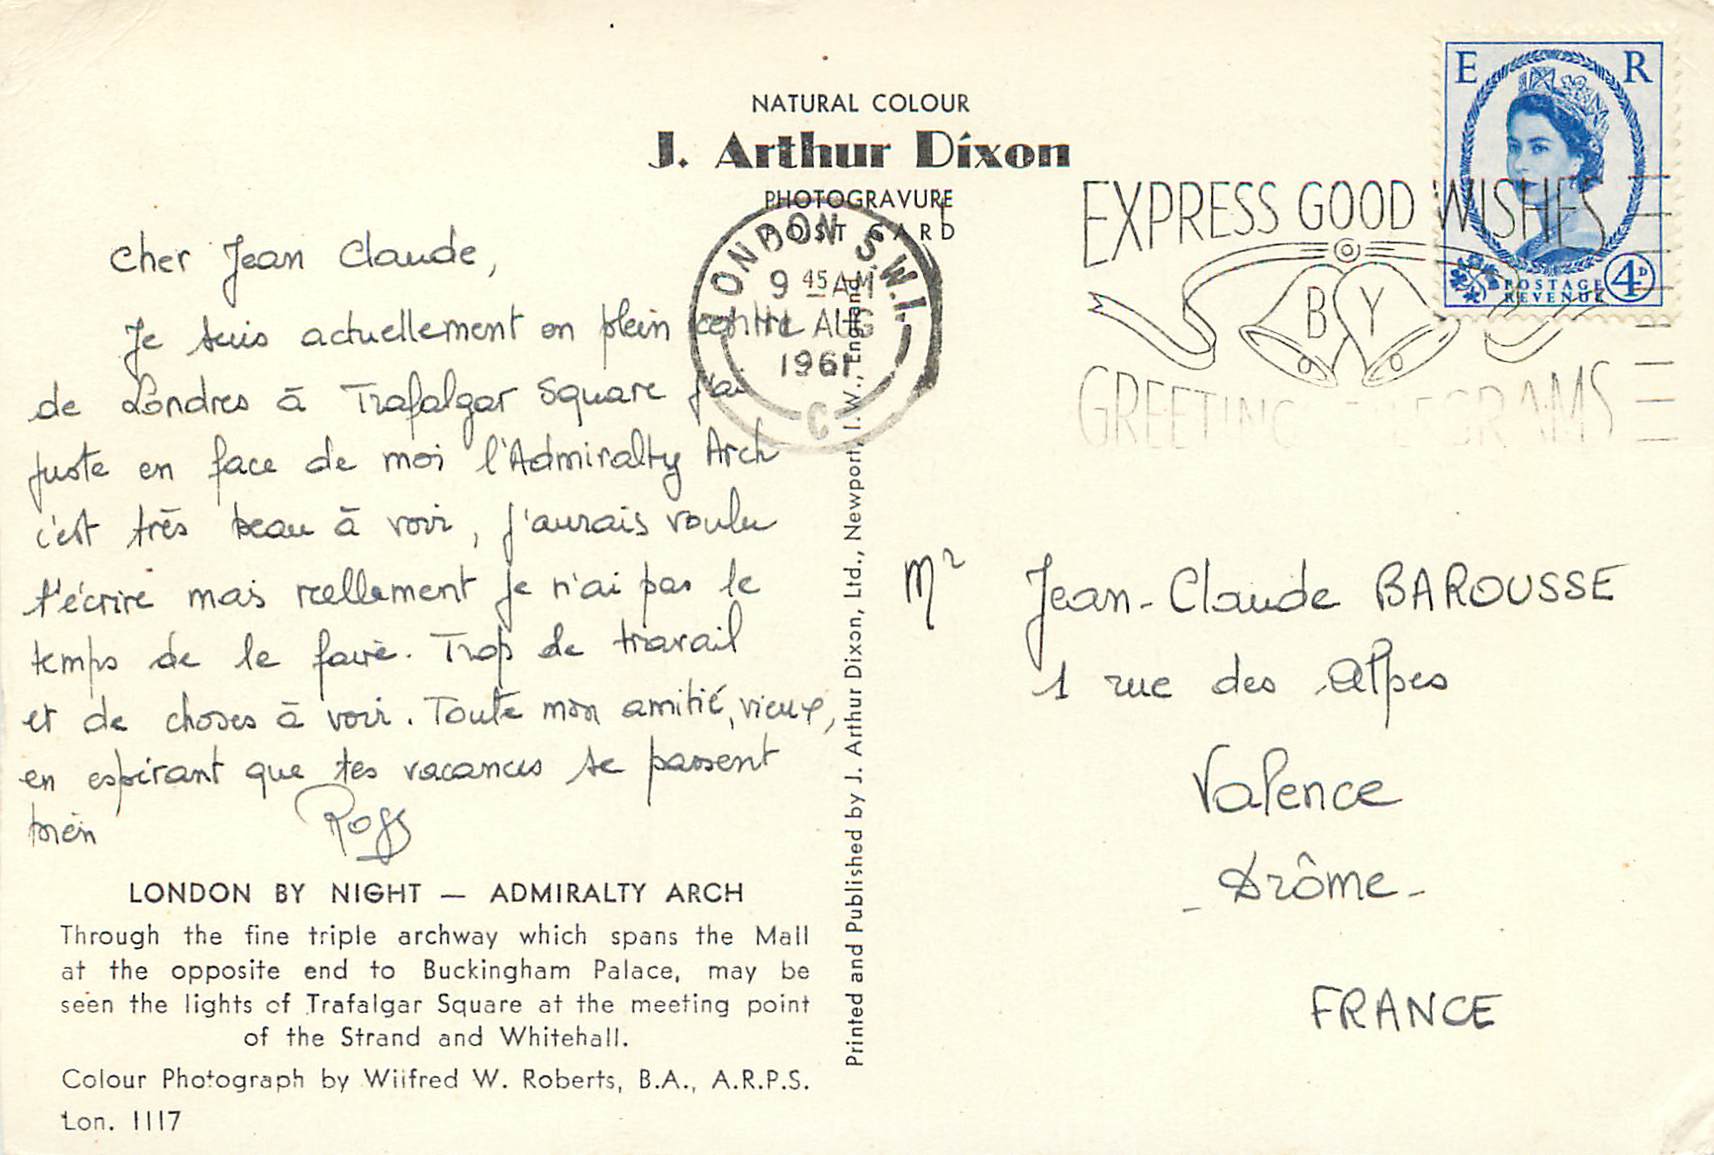 NATURAL COLOUR
J. Arthur Dixon
PHOTOGRAVURE
POST CARD
E R
POSTAGE
REVENUE
4D
LONDON S.W.1.
9 45 AM
11 AUG
1961
C
EXPRESS GOOD WISHES
BY
GREETINGS TELEGRAMS
Cher Jean Claude,
Je suis actuellement en plein centre
de Londres à Trafalgar Square j'ai
juste en face de moi l'Admiralty Arch
c'est très beau à voir, j'aurais voulu
t'écrire mais réellement je n'ai pas le
temps de le faire. Trop de travail
et de choses à voir. Toute mon amitié, vieux,
en espérant que tes vacances se passent
bien
LONDON BY NIGHT — ADMIRALTY ARCH
Through the fine triple archway which spans the Mall
at the opposite end to Buckingham Palace, may be
seen the lights of Trafalgar Square at the meeting point
of the Strand and Whitehall.
Colour Photograph by Wilfred W. Roberts, B.A., A.R.P.S.
Lon. 1117
Printed and Published by J. Arthur Dixon, Ltd., Newport, I.W., England.
Mr Jean-Claude BAROUSSE
1 rue des Alpes
Valence
- Drôme -
FRANCE